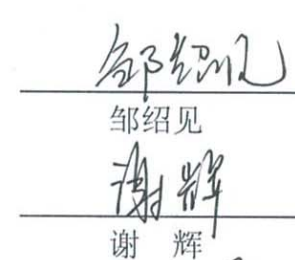 邹绍见
邹绍见
谢辉
谢 辉